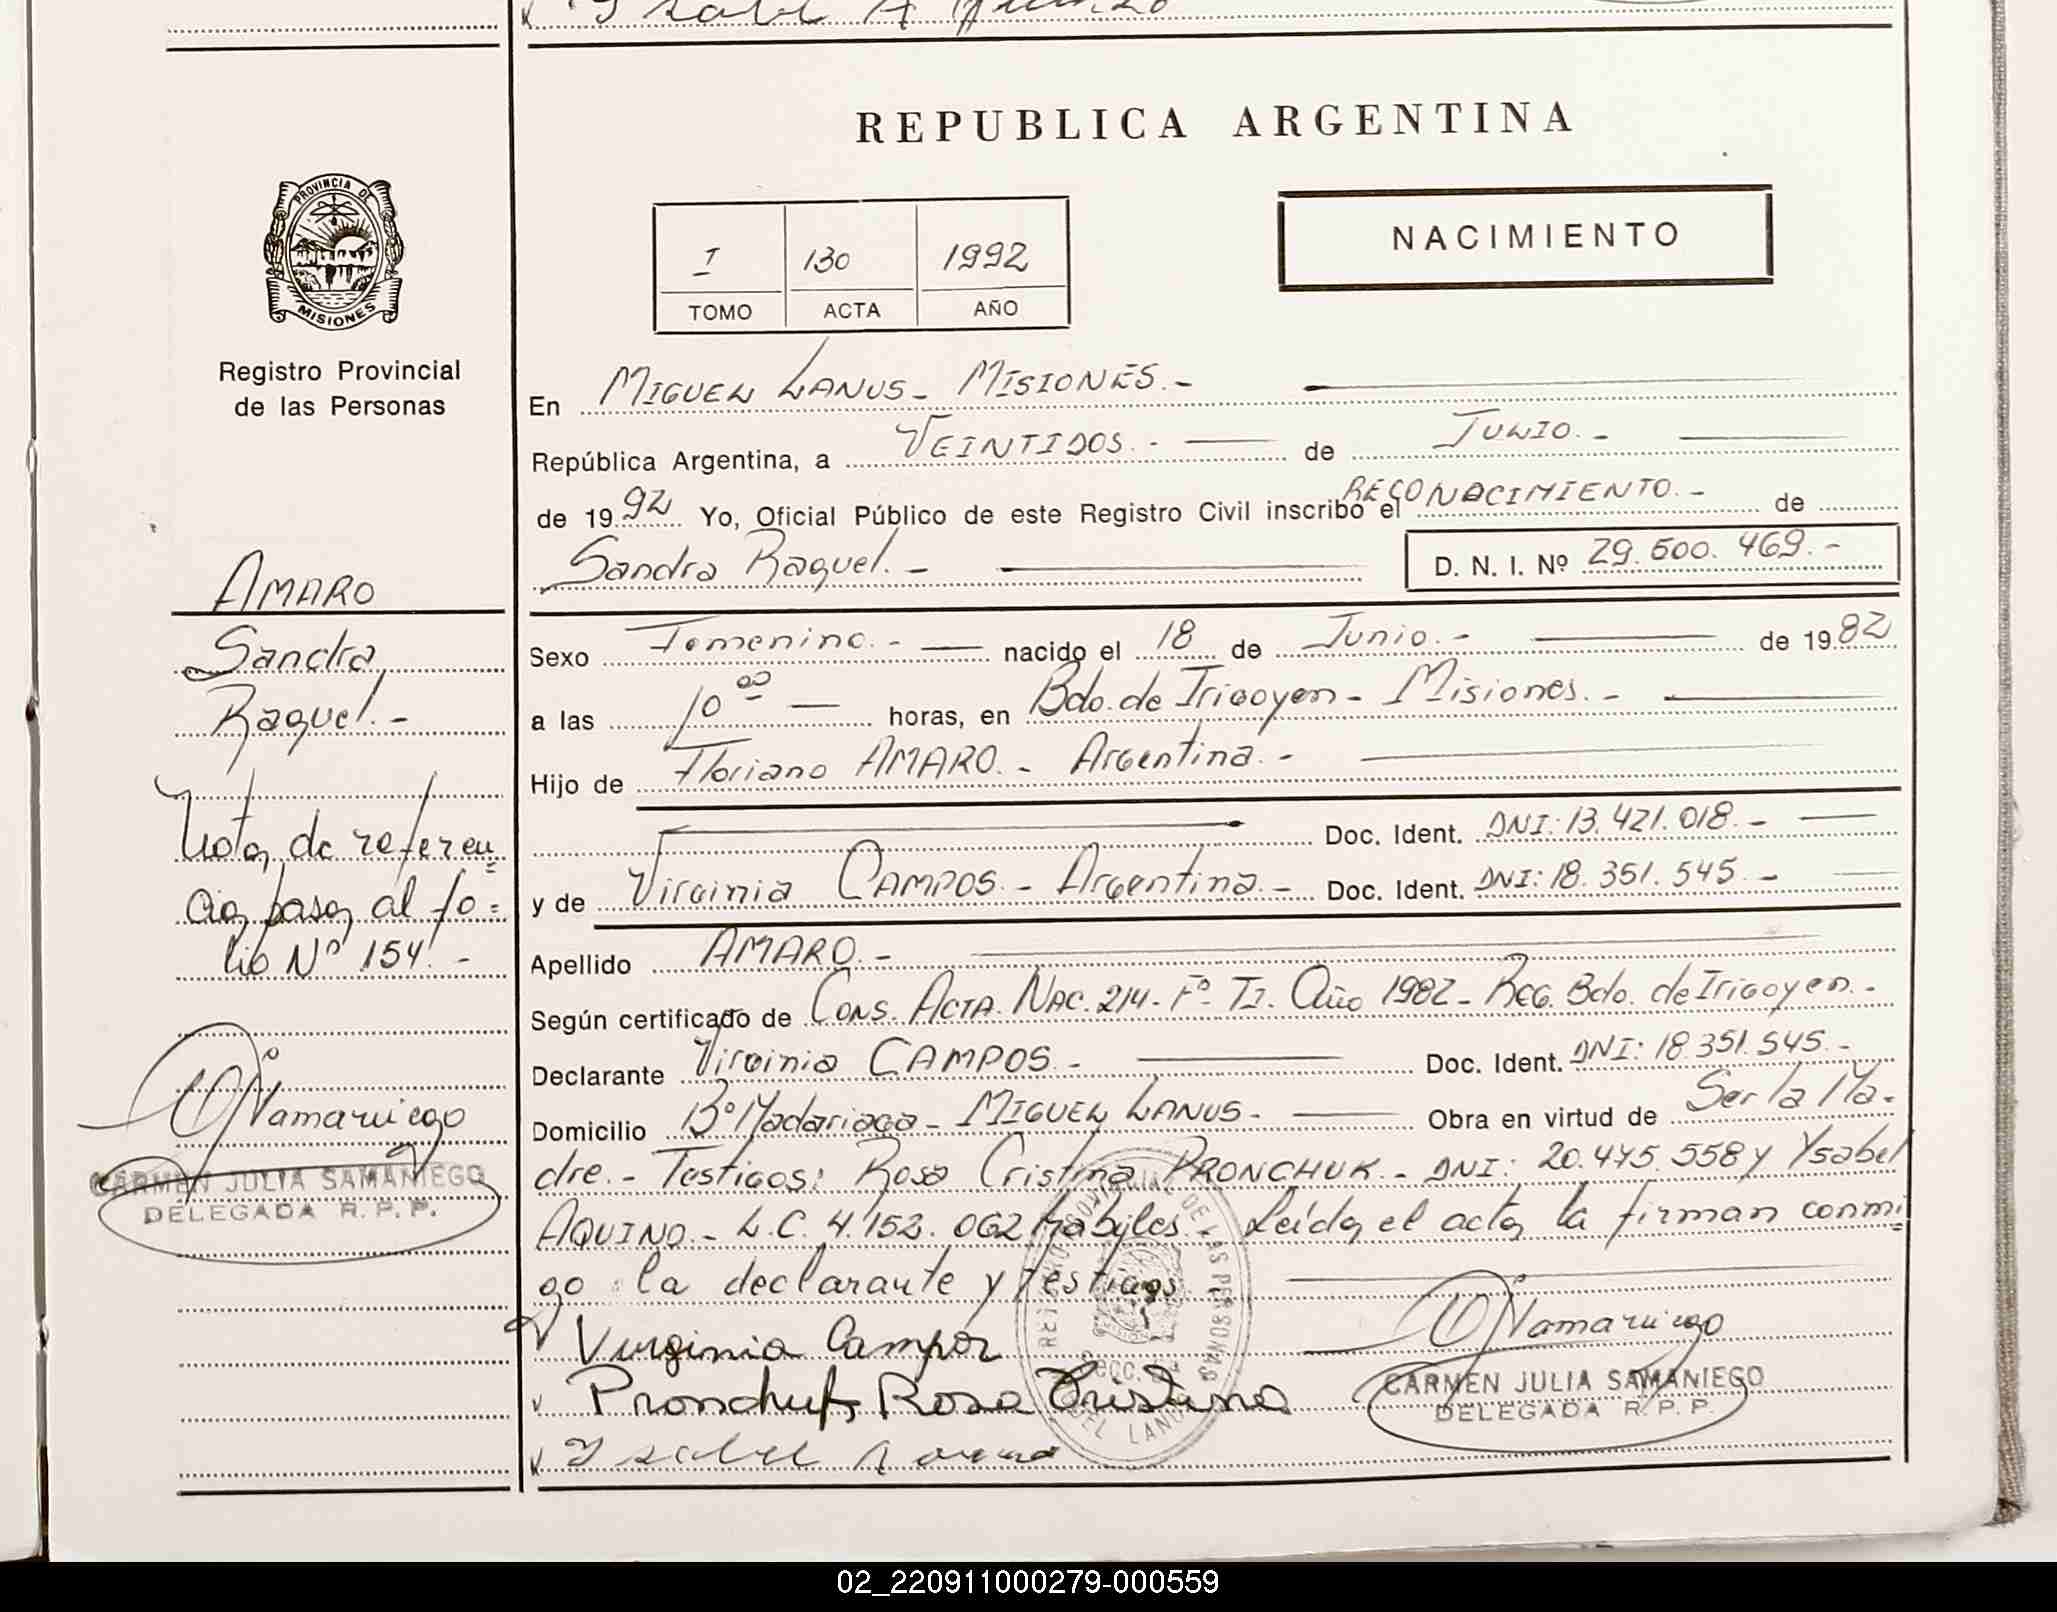 REPUBLICA ARGENTINA
PROVINCIA DE MISIONES
Registro Provincial
de las Personas
I 130 1992
TOMO ACTA AÑO
NACIMIENTO
En MIGUEL LANUS - MISIONES.-
República Argentina, a VEINTIDOS.- de JULIO.-
de 1992 Yo, Oficial Público de este Registro Civil inscribo el RECONOCIMIENTO.- de
Sandra Raquel.- D. N. I. Nº 29.600.469.-
Sexo Femenino.- nacido el 18 de Junio.- de 1982
a las 10 00 horas, en Bdo. de Irigoyen - Misiones.-
Hijo de Floriano AMARO.- Argentina.-
Doc. Ident. DNI: 13.421.018.-
y de Virginia CAMPOS.- Argentina.- Doc. Ident. DNI: 18.351.545.-
Apellido AMARO.-
Según certificado de Cons. Acta. Nac. 214- Fº- TI. Año 1982- Reg. Bdo. de Irigoyen.-
Declarante Virginia CAMPOS.- Doc. Ident. DNI: 18.351.545.-
Domicilio Bº Madariaga - MIGUEL LANUS- Obra en virtud de Ser la Ma-
dre.- Testigos: Rosa Cristina PRONCHUK.- DNI: 20.475.558 y Ysabel
AQUINO.- L.C. 4.152.062 habiles. Leída el acta, la firman conmi=
go la declarante y testigos
Virginia Campos
Pronchuk Rosa Cristina
Ysabel
CARMEN JULIA SAMANIEGO
DELEGADA R. P. P.
REGISTRO PROVINCIAL DE LAS PERSONAS
AMARO
Sandra
Raquel.-
Nota de referen=
cia pasa al fo=
lio Nº 154.-
CARMEN JULIA SAMANIEGO
DELEGADA R. P. P.
02_220911000279-000559